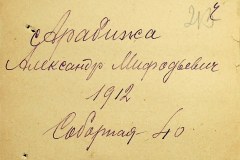 Арабижа
Александр Мифодьевич
1912
Соборная 40